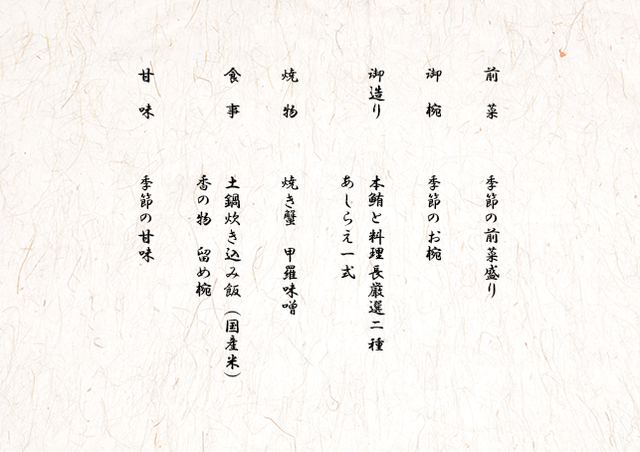 前菜
季節の前菜盛り
御椀
季節のお椀
御造り
本鮪と料理長厳選二種
あしらえ一式
焼物
焼き蟹　甲羅味噌
食事
土鍋炊き込み飯（国産米）
香の物　留め椀
甘味
季節の甘味